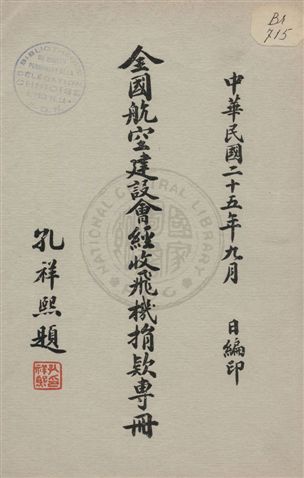 中華民國二十五年九月 日編印
全國航空建設會經收飛機捐款專冊
孔祥熙題
孔祥熙
B1
715
BIBLIOTHÈQUE
DELEGATION
CHINOISE
NATIONAL CENTRAL LIBRARY